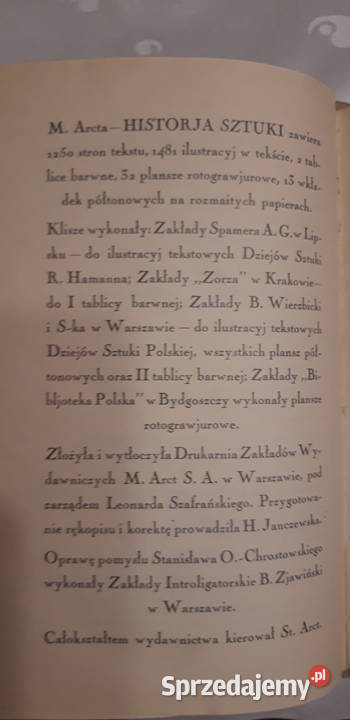 M. Arcta — HISTORJA SZTUKI zawiera
1250 stron tekstu, 1481 ilustracyj w tekście, 2 tab-
lice barwne, 32 plansze rotograwjurowe, 13 wkła-
dek półtonowych na rozmaitych papierach.
Klisze wykonały: Zakłady Spamera A. G. w Lip-
sku — do ilustracyj tekstowych Dziejów Sztuki
R. Hamanna; Zakłady „Zorza” w Krakowie —
do I tablicy barwnej; Zakłady B. Wierzbicki
i S-ka w Warszawie — do ilustracyj tekstowych
Dziejów Sztuki Polskiej, wszystkich plansz pół-
tonowych oraz II tablicy barwnej; Zakłady „Bi-
bljoteka Polska” w Bydgoszczy wykonały plansze
rotograwjurowe.
Złożyła i wytłoczyła Drukarnia Zakładów Wy-
dawniczych M. Arct S. A. w Warszawie, pod
zarządem Leonarda Szafrańskiego. Przygotowa-
nie rękopisu i korektę prowadziła H. Janczewska.
Oprawę pomysłu Stanisława O.-Chrostowskiego
wykonały Zakłady Introligatorskie B. Zjawiński
w Warszawie.
Całokształtem wydawnictwa kierował St. Arct.
Sprzedajemy.pl